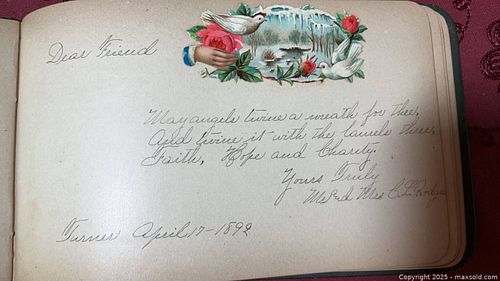 Dear Friend
May angels twine a wreath for thee,
And twine it with the laurels three,
Faith, Hope and Charity.
Yours Truly
Mr and Mrs C. L.
Turner April 17-1892
Copyright 2025 - maxsold.com